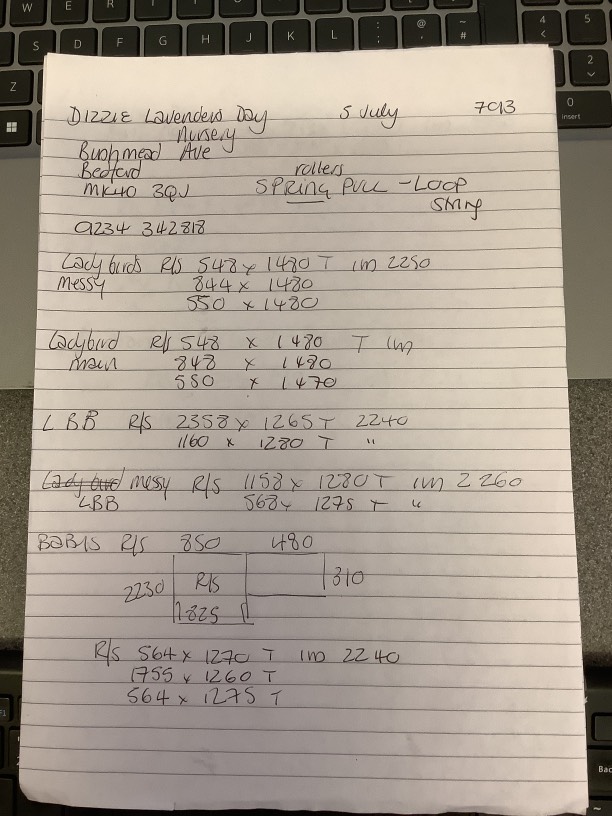 DIZZIE Lavenders Day 5 July 7913
Nursery
Bushmead Ave
Bedford rollers
MK40 3QJ SPRING PULL - LOOP
String
01234 342818
Ladybirds R/S 548 x 1480 T 1m 2250
Messy 844 x 1480
550 x 1480
Ladybird R/S 548 x 1480 T 1m
main 848 x 1480
550 x 1470
LBB R/S 2358 x 1265 T 2240
1160 x 1280 T "
Ladybird messy R/S 1158 x 1280 T 1m 2260
LBB 568 x 1275 T "
BABIS R/S 850 480
2230 R/S 310
1825
R/S 564 x 1270 T 1m 2240
1755 x 1260 T
564 x 1275 T